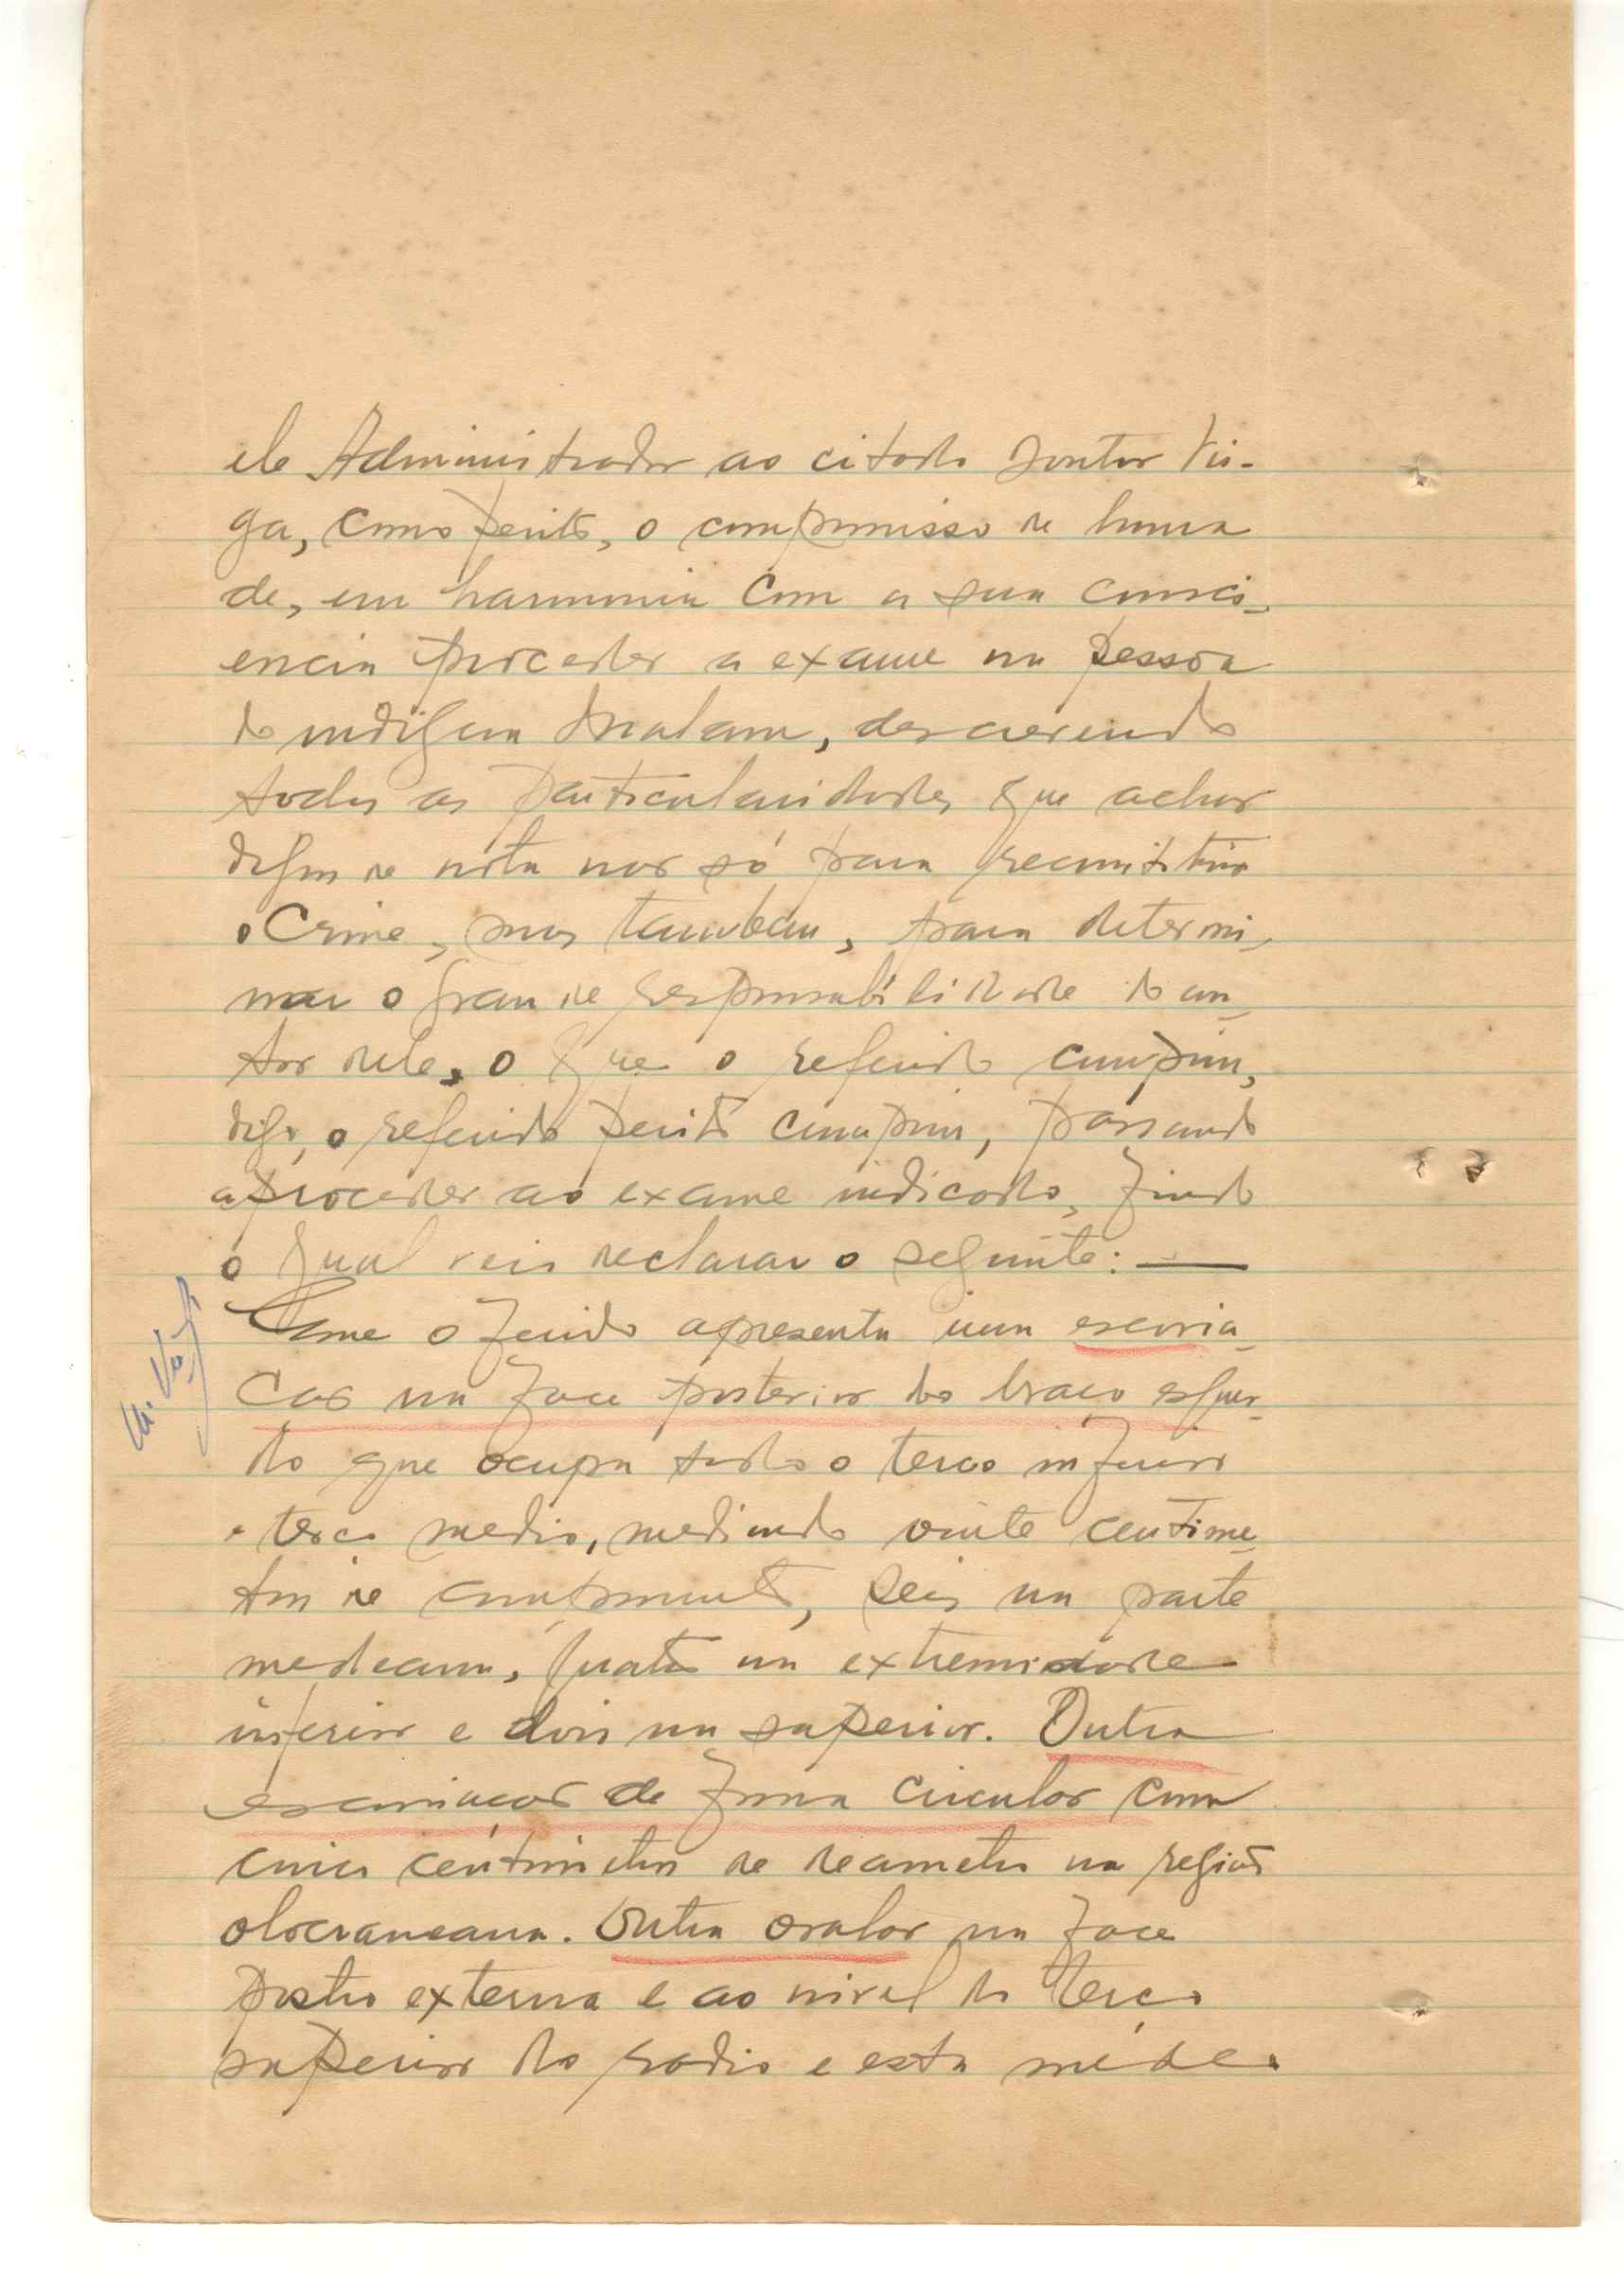 ele Administrador ao citado Doutor Vei-
ga, como perito, o compromisso de honra
de, em harmonia com a sua consci-
encia proceder a exame na pessoa
do indigena descrevendo
todas as particularidades que achar
dignas de nota não só para reconstituir
o Crime, mas tambem, para determi-
nar o grau de responsabilidade do au-
tor dele, o que o referido cumpriu,
digo, o referido perito cumpriu, passando
a proceder ao exame indicado, findo
o qual veis declarar o seguinte: —
Que o ferido apresenta uma escoria-
ção na face posterior do braço esquer-
do que ocupa todo o terço inferior
e terço medio, medindo vinte centime-
tros de comprimento, seis na parte
mediana, quatro na extremidade
inferior e dois na superior. Outra
escoriação de forma circular com
cinco centimetros de deametro na região
olocraneana. Outra ovalar na face
postero externa e ao nivel do terço
superior do radio e esta méde